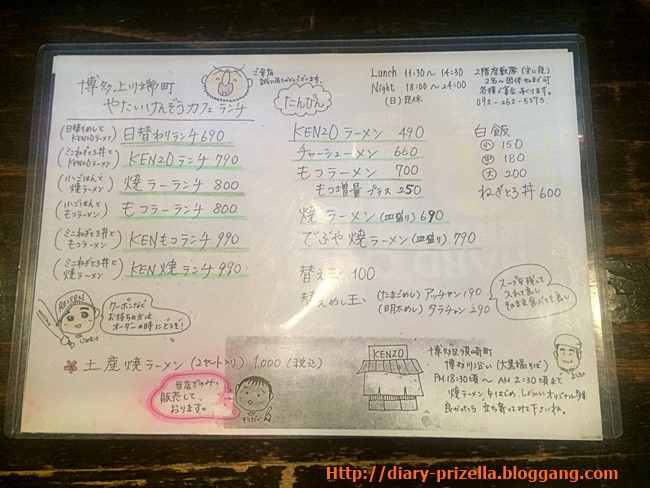 博多上川端町
やたいけんぞうカフェ ランチ
ご来店
誠にありがとうございます。
Lunch 11:30〜14:30
Night 18:00〜24:00
(日)定休
2階座敷席(主に夜)
092-262-5373
(日替りめしとKENZOラーメン) 日替わりランチ 690
(ミニねぎとろ丼とKENZOラーメン) KENZO ランチ 790
(小ごはんと焼ラーメン) 焼ラーランチ 800
(小ごはんともつラーメン) もつラーランチ 800
(ミニねぎとろ丼ともつラーメン) KENもつランチ 990
(ミニねぎとろ丼と焼ラーメン) KEN焼ランチ 990
クーポンなど
お持ちの方は
オーダーの時にどうぞ!
たんぴん
KENZO ラーメン 490
チャーシューメン 660
もつラーメン 700
もつ増量 プラス 250
焼ラーメン(皿盛り) 690
でぶや焼ラーメン(皿盛り) 790
替え玉 100
替えめし玉
(たまごめし) アッチャン 190
(明太めし) タラチャン 290
白飯
小 150
中 180
大 200
ねぎとろ丼 600
スープを残して
入れて良し
そのまま食べても良し
土産焼ラーメン(2セット入り) 1,000(税込)
当店でのみ
販売して
おります。
KENZO
博多区須崎町
博多川沿い(大黒橋そば)
PM 18:30頃〜AM 2:30頃まで
焼ラーメンをはじめ、
良かったら立ち寄ってみて下さいね。
Http://diary-prizella.bloggang.com